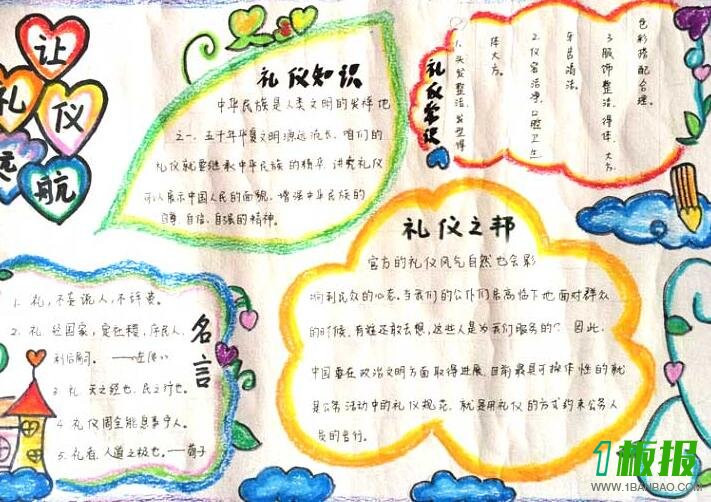 让
礼仪
远航
礼仪知识
中华民族是人类文明的发祥地
之一，五千年华夏文明源远流长，咱们的
礼仪就要继承中华民族的精华，讲究礼仪
可以展示中国人民的面貌，增强中华民族的
自尊、自信、自强的精神。
礼仪常识
1、头发整洁、发型得
体大方。
2、仪容洁净，口腔卫生
牙齿清洁。
3、服饰整洁、得体、大方
色彩搭配合理。
礼仪之邦
官方的礼仪风气自然也会影
响到民众的心态。当我们的公仆们居高临下地面对群众
的时候，有谁还敢去想，这些人是为我们服务的？因此，
中国要在政治文明方面取得进展，目前最具可操作性的就
是公务活动中的礼仪规范，就是用礼仪的方式约束公务人
员的言行。
名言
1、礼，不妄说人，不辞费。
2、礼，经国家，定社稷，序民人，
利后嗣。——左传
3、礼，天之经也，民之行也。
4、礼仪周全能息事宁人。
5、礼者，人道之极也。——荀子
1板报
WWW.1BANBAO.COM